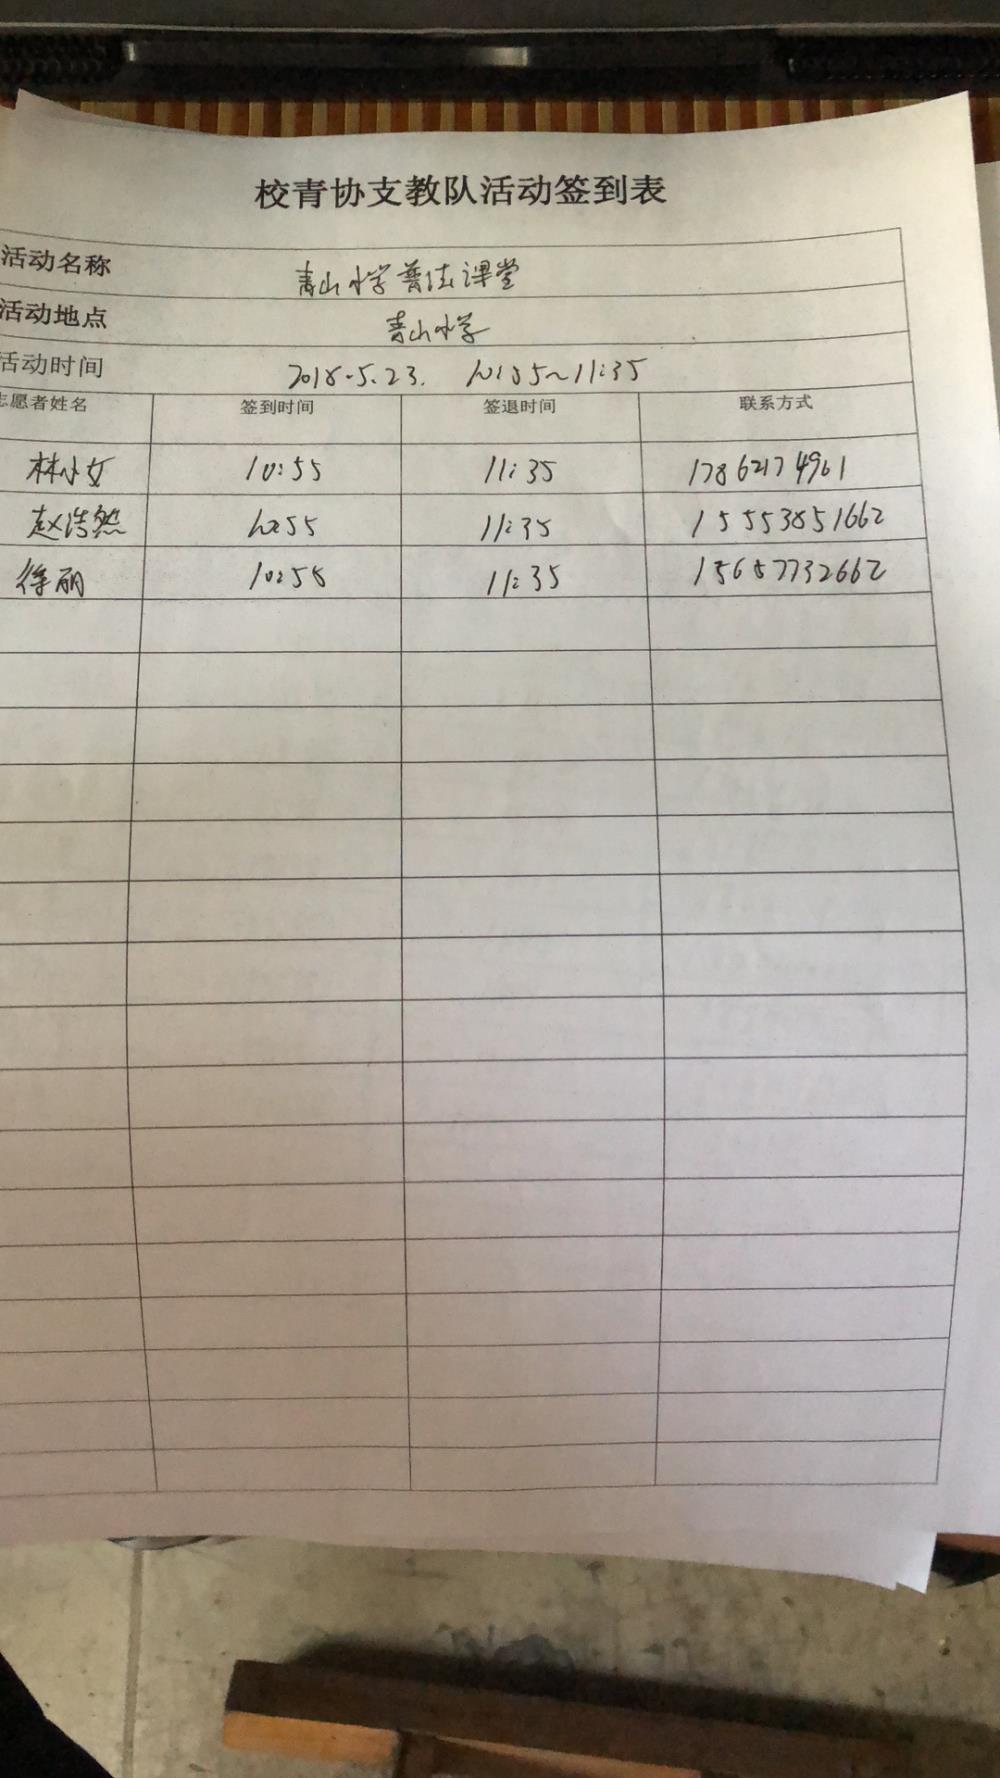 校青协支教队活动签到表
活动名称 青山小学普法课堂
活动地点 青山小学
活动时间 2018.5.23. 10:55~11:35
志愿者姓名 签到时间 签退时间 联系方式
林小女 10:55 11:35 17862174961
赵浩然 10:55 11:35 15553851662
徐丽 10:55 11:35 15657732662